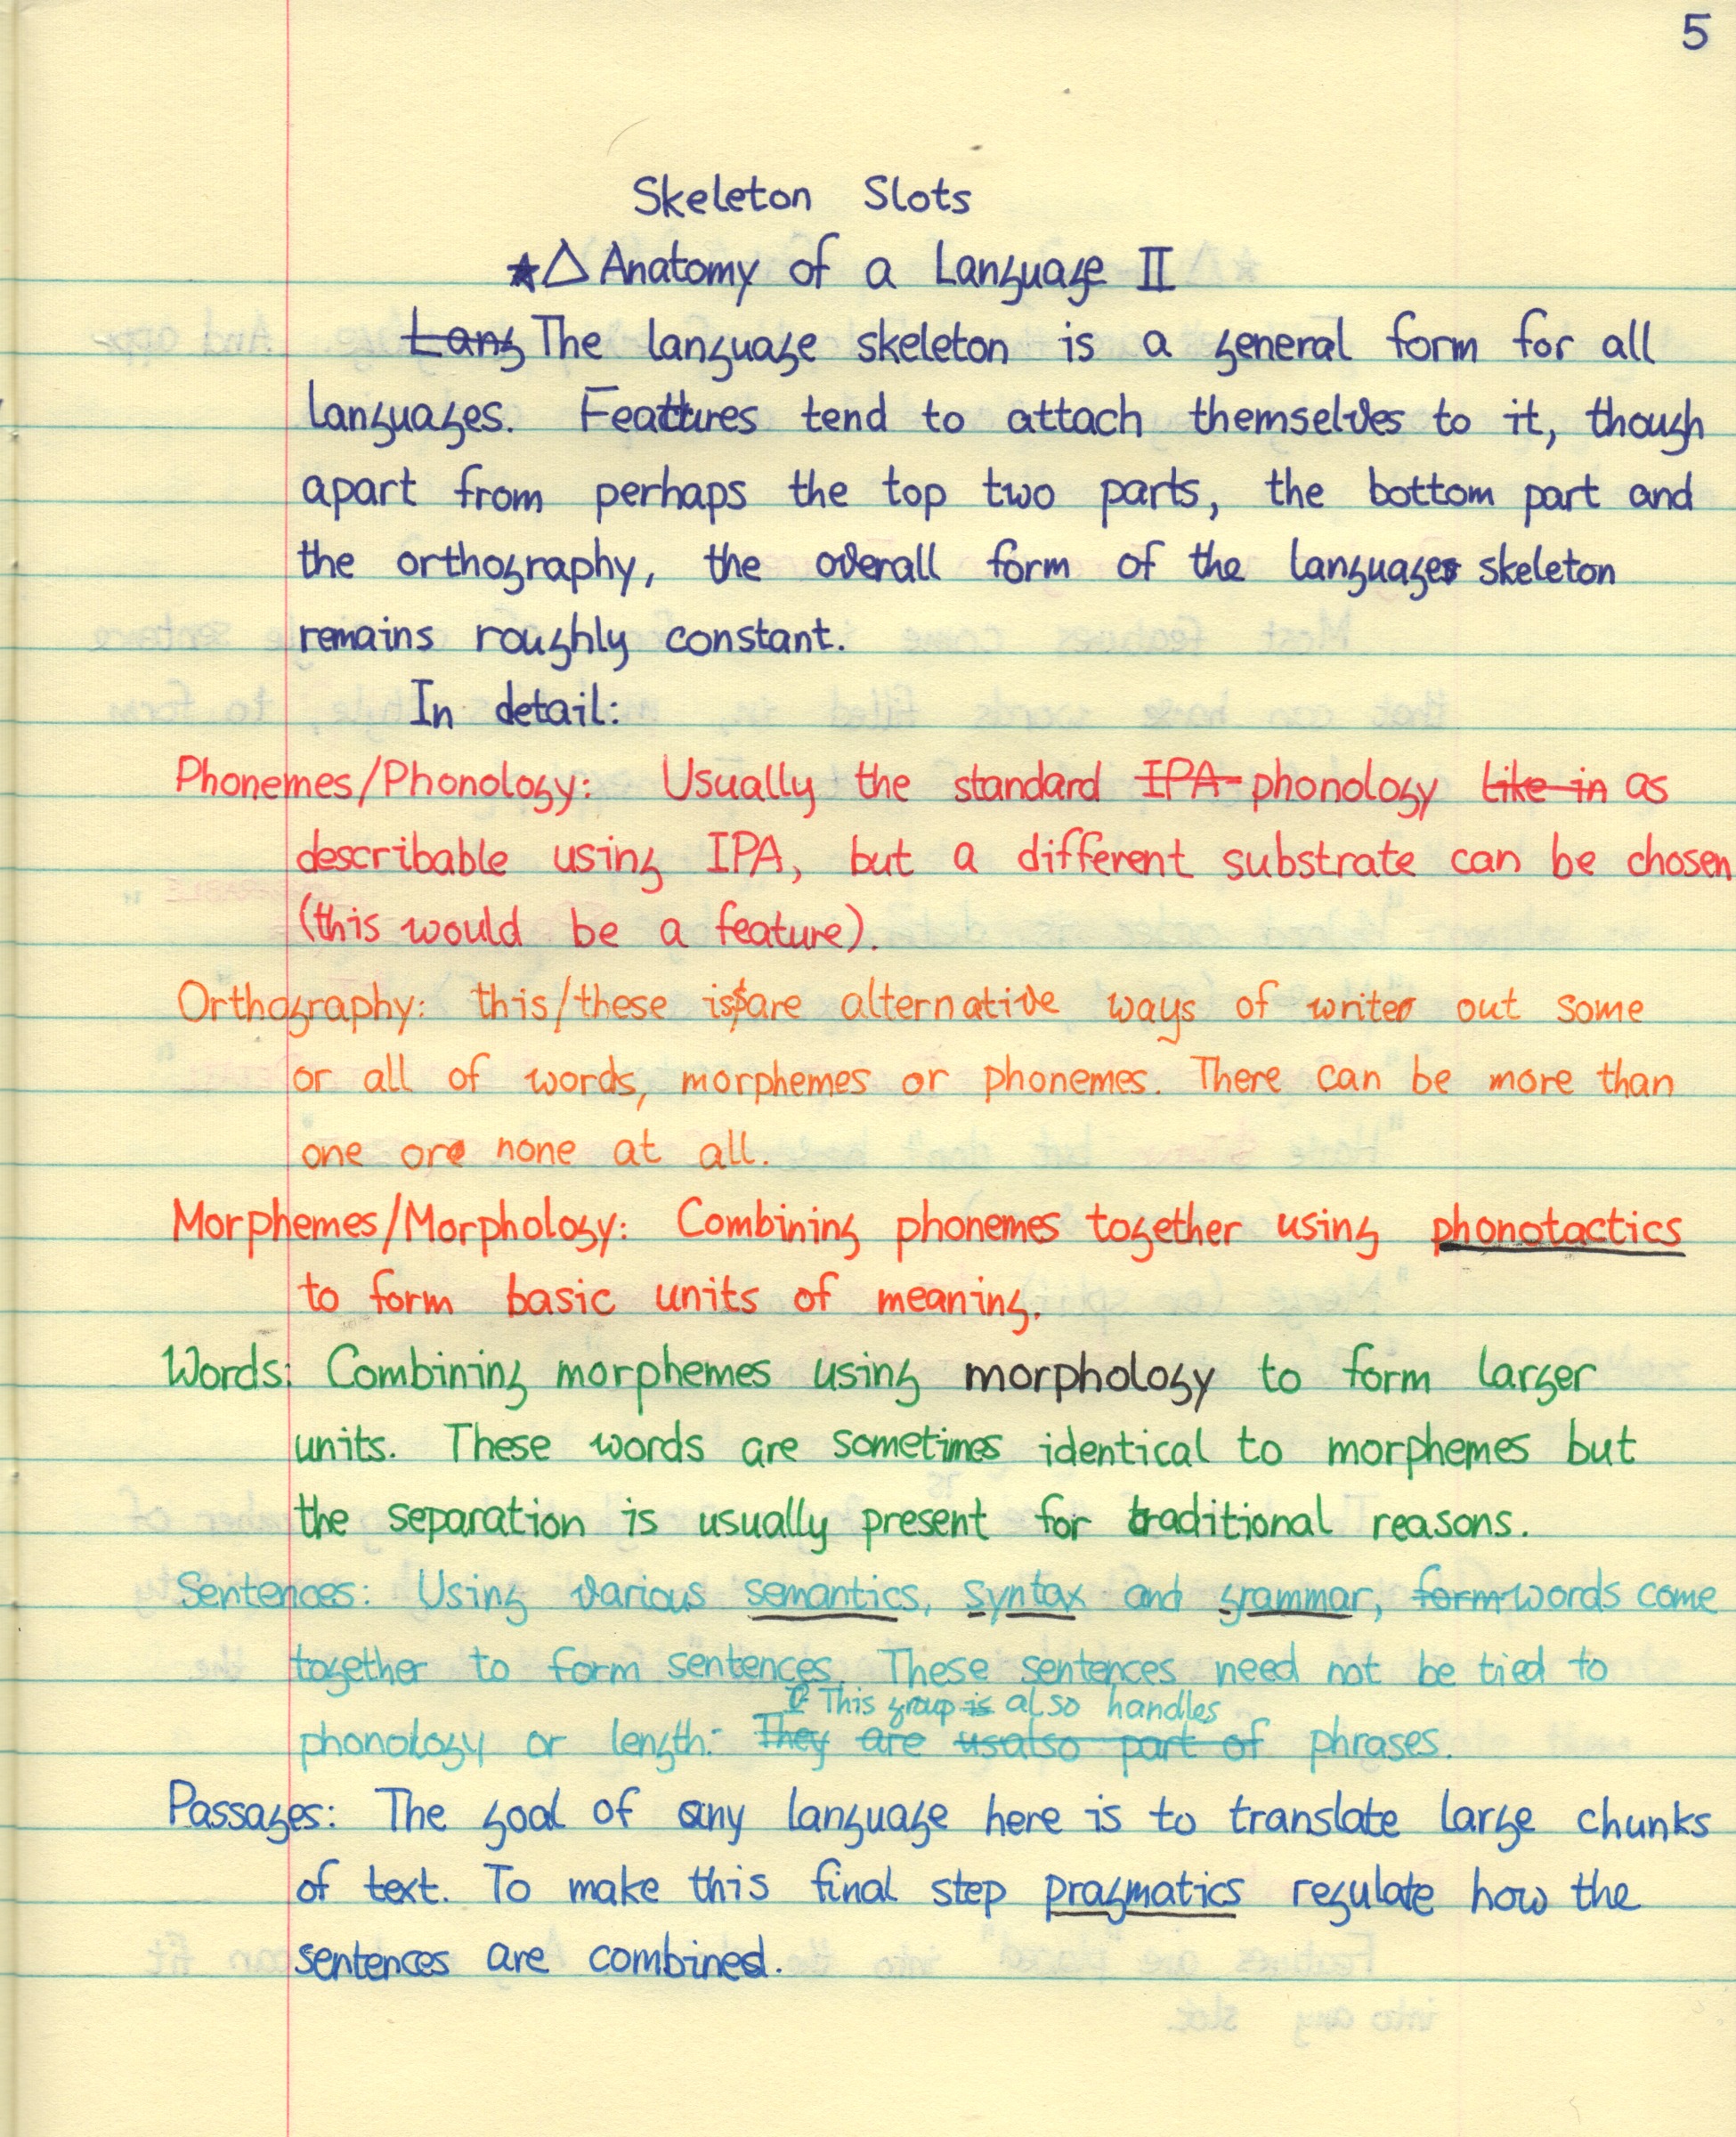 5
Skeleton Slots
★△ Anatomy of a Language II
Lang The language skeleton is a general form for all
languages. Features tend to attach themselves to it, though
apart from perhaps the top two parts, the bottom part and
the orthography, the overall form of the language skeleton
remains roughly constant.
In detail:
Phonemes/Phonology: Usually the standard IPA phonology like in as
describable using IPA, but a different substrate can be chosen
(this would be a feature).
Orthography: this/these is/are alternative ways of write out some
or all of words, morphemes or phonemes. There can be more than
one or none at all.
Morphemes/Morphology: Combining phonemes together using phonotactics
to form basic units of meaning.
Words: Combining morphemes using morphology to form larger
units. These words are sometimes identical to morphemes but
the separation is usually present for traditional reasons.
Sentences: Using various semantics, syntax and grammar, form words come
together to form sentences. These sentences need not be tied to
This group is also handles
phonology or length. They are us also part of phrases.
Passages: The goal of any language here is to translate large chunks
of text. To make this final step pragmatics regulate how the
sentences are combined.